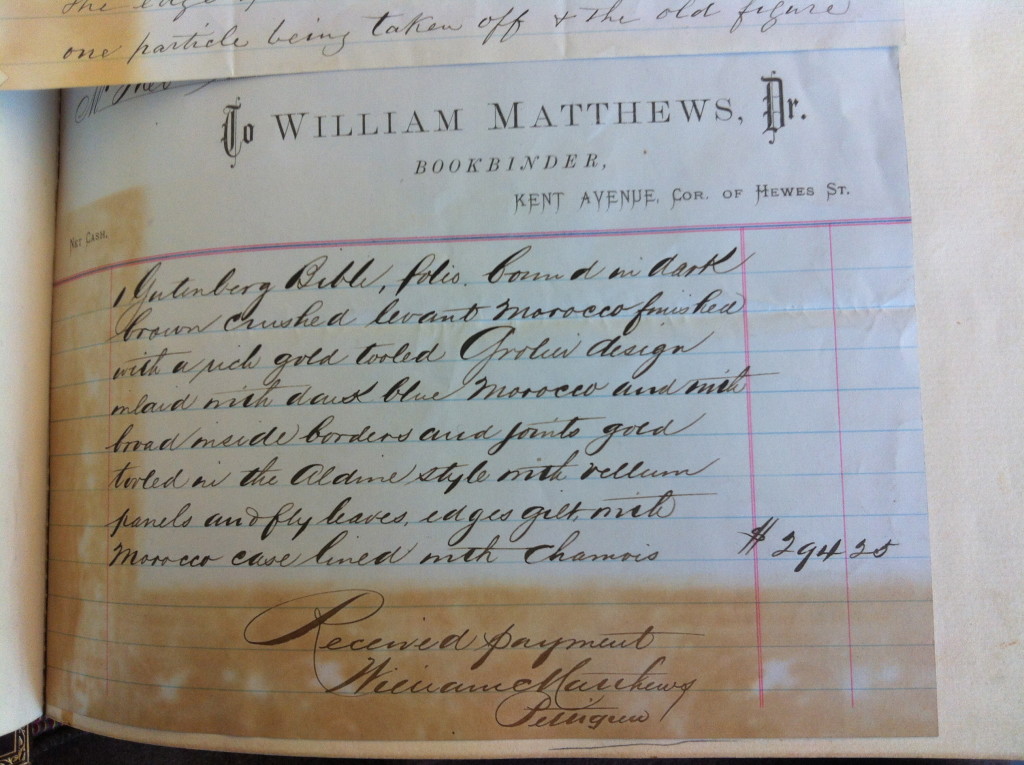 the edge
one particle being taken off & the old figure
To William Matthews, Dr.
BOOKBINDER,
KENT AVENUE, Cor. of Hewes St.
Net Cash.
1 Gutenberg Bible, folio. bound in dark
brown crushed levant Morocco finished
with a rich gold tooled Grolier design
inlaid with dark blue Morocco and with
broad inside borders and joints gold
tooled in the Aldine style with vellum
panels and fly leaves, edges gilt, with
Morocco case lined with Chamois $294 25
Received payment
William Matthews
Pettigrew